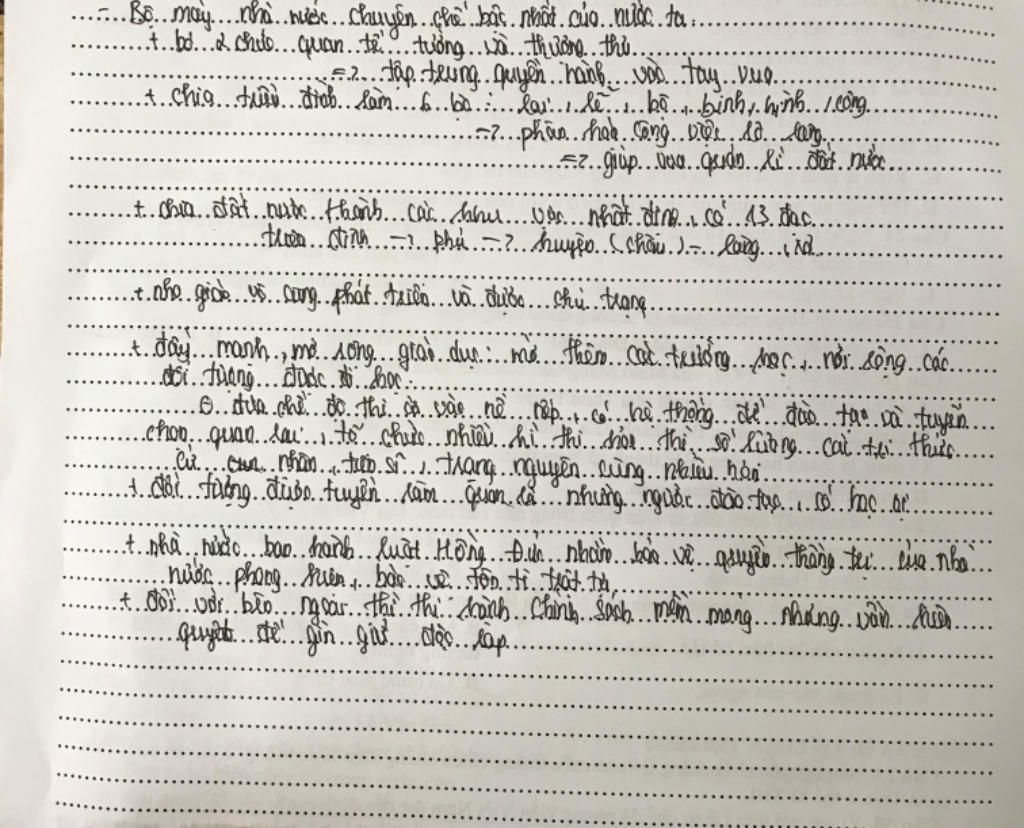 - Bộ máy nhà nước chuyên chế bậc nhất của nước ta:
+ bỏ 2 chức quan tể tướng và thương thư
=> tập trung quyền hành vào tay vua
+ chia triều đình làm 6 bộ: lại, lễ, hộ, binh, hình, công
=> phân hoá công việc rõ ràng
=> giúp vua quản lí đất nước
+ chia đất nước thành các khu vực nhất định, có 13 đạo
thừa → phủ → huyện (châu) - làng, xã
+ nho giáo vô cùng phát triển và được chú trọng
+ đẩy mạnh, mở rộng giáo dục: mở thêm các trường học, nới rộng các
đối tượng được đi học
đưa chế độ thi cử vào nề nếp, có hệ thống để đào tạo và tuyển
chọn quan lại, tổ chức nhiều kì thi hơn thì số lượng các trí thức
cử nhân, tiến sĩ, trạng nguyên cũng nhiều hơn
+ đối tượng được tuyển làm quan là những người đào tạo, có học
+ nhà nước ban hành luật Hồng Đức nhằm bảo vệ quyền thống trị của nhà
nước phong kiến, bảo vệ tôn ti trật tự,
+ đối với bên ngoài thì thi hành chính sách mềm mỏng nhưng vẫn kiên
quyết để gìn giữ độc lập